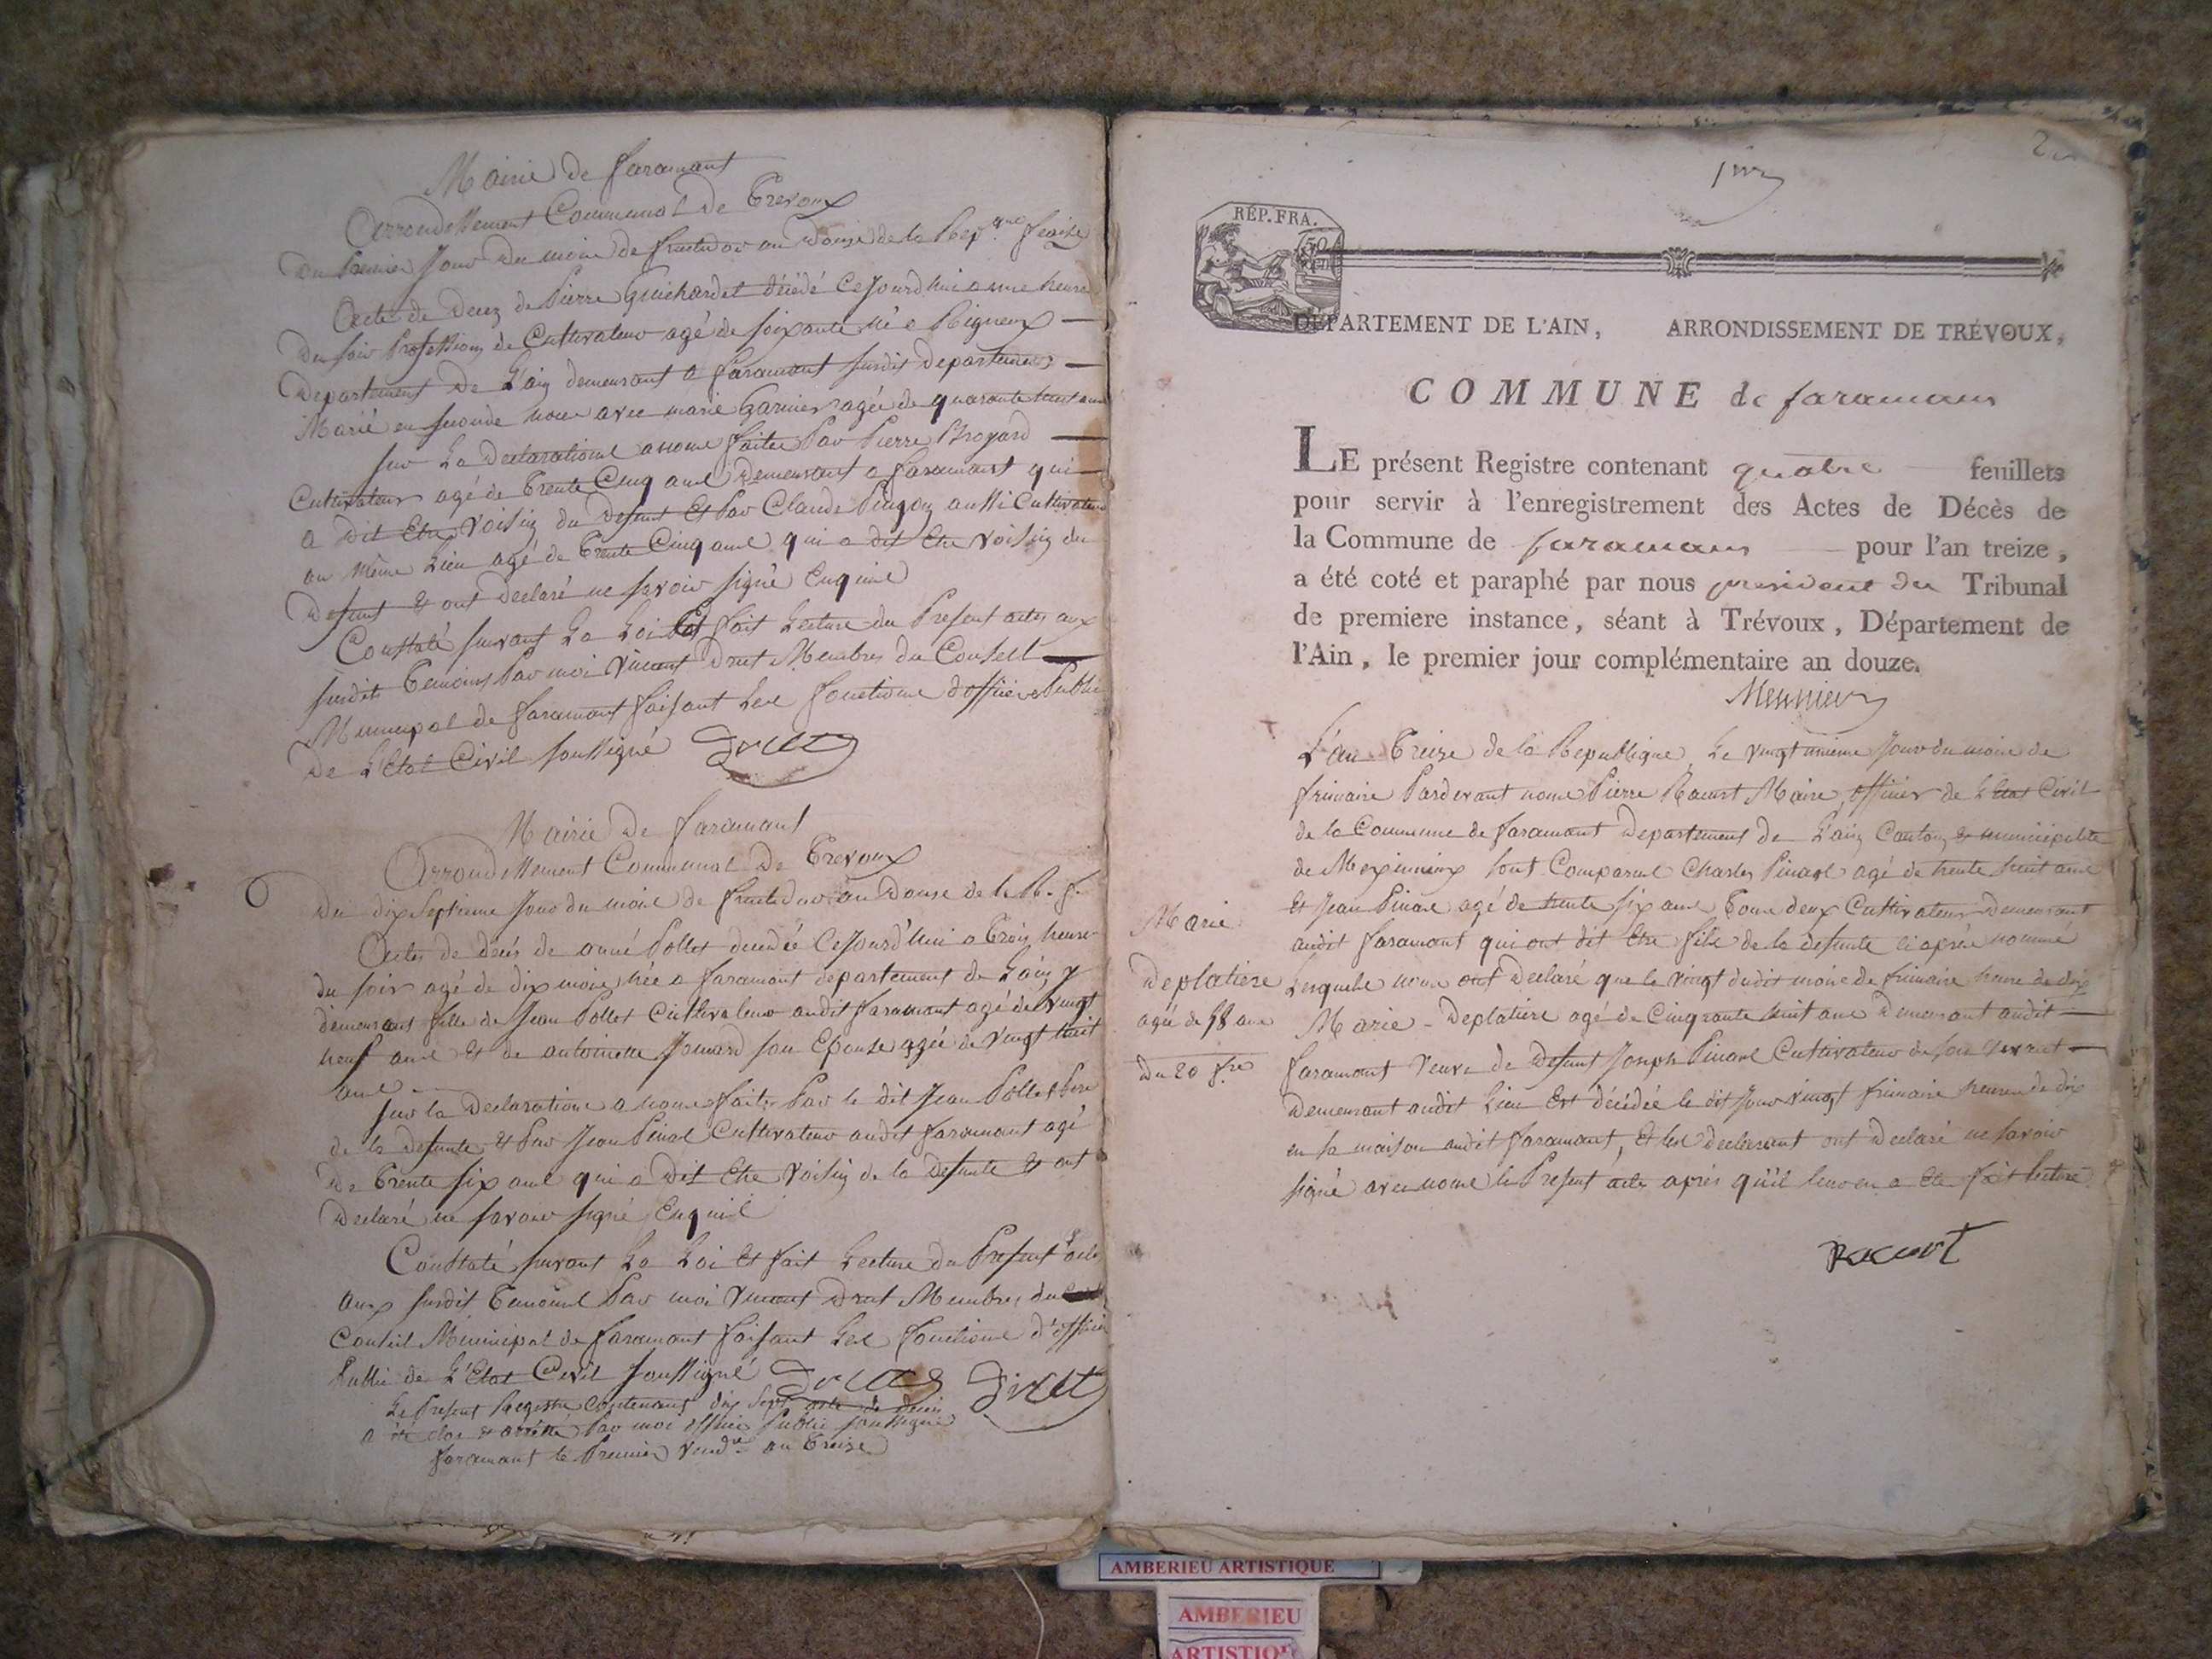 Mairie de faramant
Arrondissement Communal De Trevoux
Du Premier Jour du moine de fructidor an Douze de la Rep.que
Acte de Decez de Pierre Guichardet décédé Ce Jourd'hui a une heure
Du soir Profession de Cultivateur agé de soixante né a Rigneux
Departement De L'ain demeurant a faramant susdit departement
Marié en seconde noce avec marie Garnier agée de quarante huit ans
sur La Declaration a nous faite Par Pierre Broyard
Cultivateur agé de Trente Cinq ans Demeurant a faramant qui
a Dit Etre Voisin du Defunt Et Par Claude Pingon aussi Cultivateur
au Même Lieu agé de Trente Cinq ans qui a dit Etre voisin du
Defunt Et ont declaré ne savoir signé Enquis
Constaté suivant La Loi Et fait Lecture du Present acte aux
susdits Temoins Par moi Vincent Drut Membres du Conseil
Municipal de faramant faisant Les fonctions d'officier Public
De L'Etat Civil soussigné Drut
Mairie De faramant
Arrondissement Communal De Trevoux
Du dix septieme Jour du moine de fructidor an Douse de la R. f.
Actes de decés de anné Pollet decedée Ce Jourd'hui a Trois heure
du soir agé de dix mois née a faramant departement de L'ain y
demeurant fille de Jean Pollet Cultivateur audit faramant agé de vingt
neuf ans Et de antoinette Jomard son Epouse agée de Vingt huit
ans
sur la Declaration a nous faites Par le dit Jean Pollet Pere
de la defunte Et Par Jean Pinard Cultivateur audit faramant agé
De Trente six ans qui a Dit Etre Voisin de la Defunte Et ont
Declaré ne savoir signé Enquis
Constaté suivant La Loi Et fait Lecture du Present acte
aux susdit Temoins Par moi Vincent Drut Membres du
Conseil Municipal de faramant faisant Les fonctions d'officier
Public de L'Etat Civil soussigné Drut Drut
Le Present Registre Contenant dix sept acte de deces
a été clos et arrété Par moi officier Public soussigné
faramant le Premier vend.re an Treize
RÉP. FRA.
DÉPARTEMENT DE L'AIN, ARRONDISSEMENT DE TRÉVOUX,
COMMUNE de faramans
LE présent Registre contenant quatre feuillets
pour servir à l'enregistrement des Actes de Décès de
la Commune de faramans pour l'an treize,
a été coté et paraphé par nous president du Tribunal
de premiere instance, séant à Trévoux, Département de
l'Ain, le premier jour complémentaire an douze.
Meunier
L'an Treize de la Republique Le vingt unieme Jour du moine de
frimaire Pardevant nous Pierre Racurt Maire, officier de L'Etat Civil
de la Commune de faramant Departement de L'ain Canton & municipalité
de Meximieux sont Comparus Charles Pinard agé de trente huit ans
Et Jean Pinard agé de trente six ans Tous deux Cultivateurs Demeurant
audit faramant qui ont dit Etre fils de la defunte ci après nommé
Lesquels nous ont Declaré que le Vingt dudit mois de frimaire heure de dix
Marie - Deplatiere agé de Cinquante huit ans Demeurant audit
faramant Veuve de Defunt Joseph Pinard Cultivateur de son vivant
Demeurant audit Lieu Est décédée le dit Jour vingt frimaire heures de dix
en sa maison audit faramant, Et les declarant ont Declaré ne savoir
signé avec nous le Present acte après qu'il leur en a Eté fait lecture.
Marie
Deplatiere
agée de 58 ans
Du 20 f.re
Racurt
AMBERIEU ARTISTIQUE
AMBERIEU